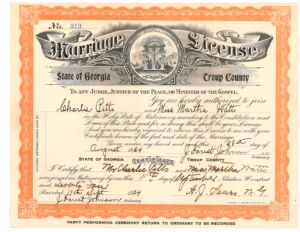 No. 313
Marriage License
State of Georgia Troup County
TO ANY JUDGE, JUSTICE OF THE PEACE, OR MINISTER OF THE GOSPEL.
You are hereby authorized to join
Charlie Potts and Miss Martha Watts
in the Holy State of Matrimony according to the Constitution and
Laws of this State and for so doing this shall be your License.
And you are hereby required to return this License to me with your
Certificate hereon of the fact and date of the Marriage.
Given under my hand and seal this day of
August
STATE OF GEORGIA CERTIFICATE TROUP COUNTY
I Certify that Mr Charles Potts and Miss Martha Watts
were joined in Matrimony by me this day of September Nineteen Hundred
and
Ordinary
PARTY PERFORMING CEREMONY RETURN TO ORDINARY TO BE RECORDED